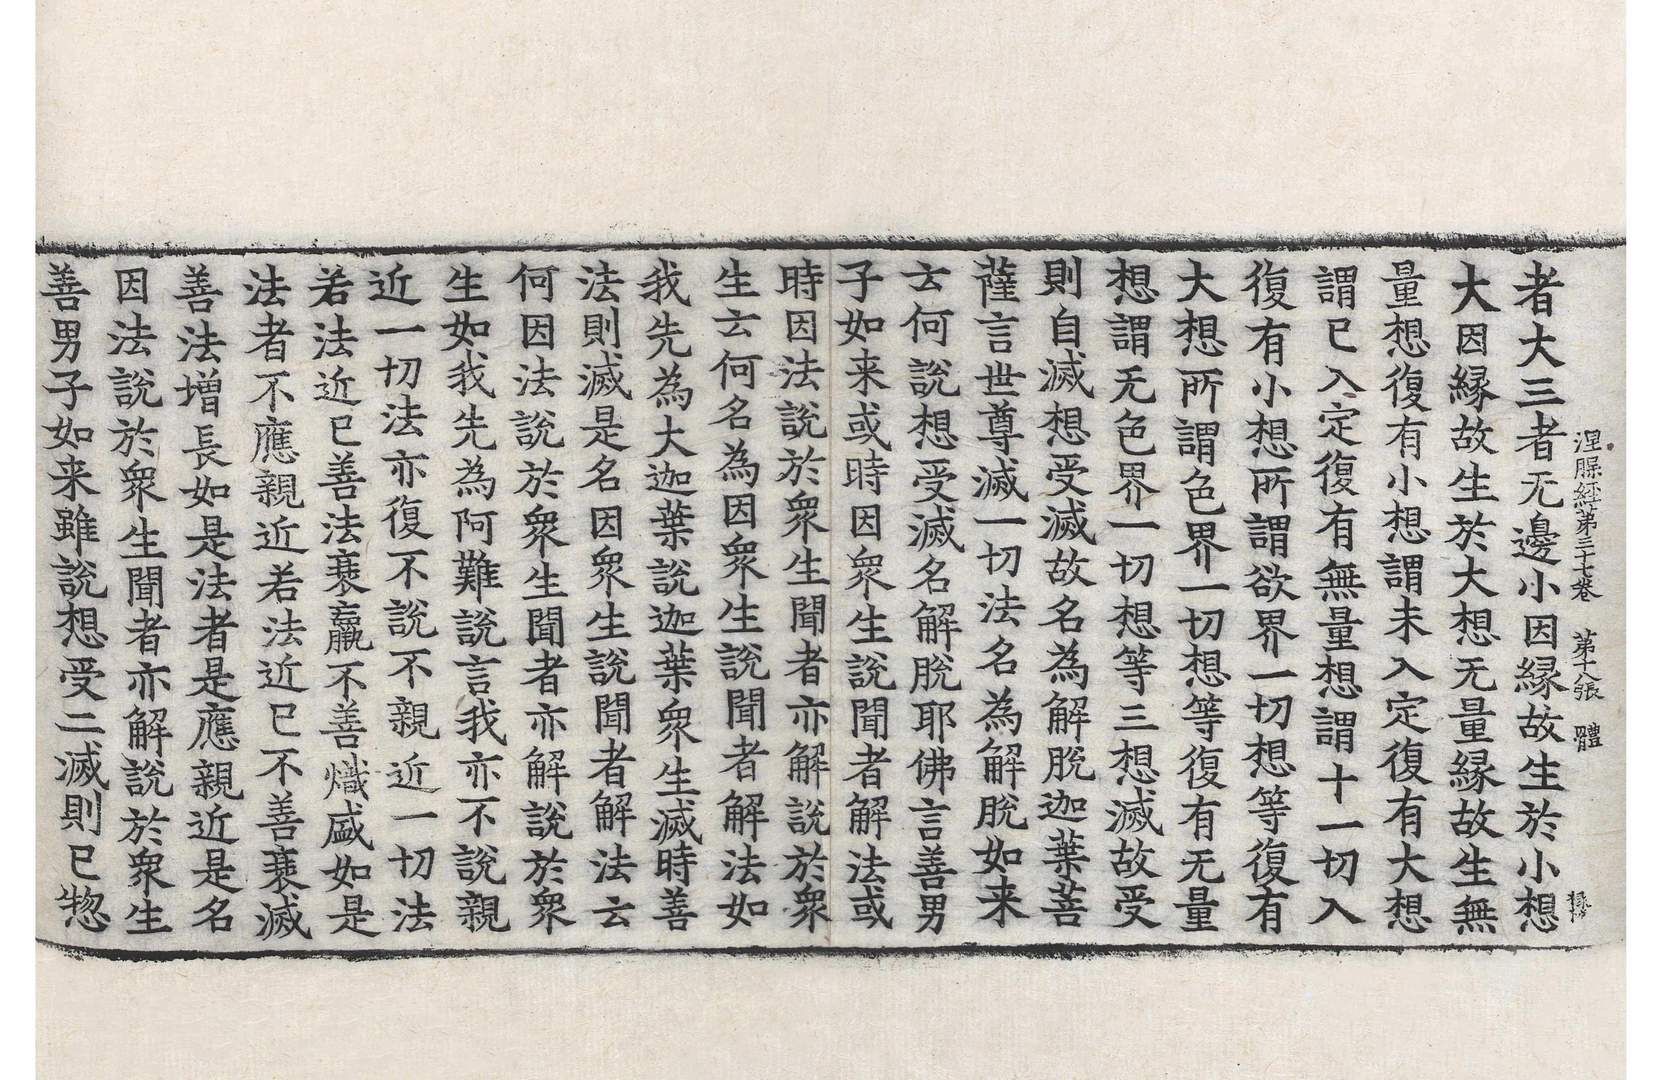 涅槃經第三十七卷 第十八張 體
者大三者无邊小因縁故生於小想
大因縁故生於大想无量縁故生無
量想復有小想謂未入定復有大想
謂已入定復有無量想謂十一切入
復有小想所謂欲界一切想等復有
大想所謂色界一切想等復有无量
想謂无色界一切想等三想滅故受
則自滅想受滅故名為解脫迦葉菩
薩言世尊滅一切法名為解脫如来
云何說想受滅名解脫耶佛言善男
子如来或時因衆生說聞者解法或
時因法說於衆生聞者亦解說於衆
生云何名為因衆生說聞者解法如
我先為大迦葉說迦葉衆生滅時善
法則滅是名因衆生說聞者解法云
何因法說於衆生聞者亦解說於衆
生如我先為阿難說言我亦不說親
近一切法亦復不說不親近一切法
若法近已善法衰羸不善熾盛如是
法者不應親近若法近已不善衰滅
善法增長如是法者是應親近是名
因法說於衆生聞者亦解說於衆生
善男子如来雖說想受二滅則已惣